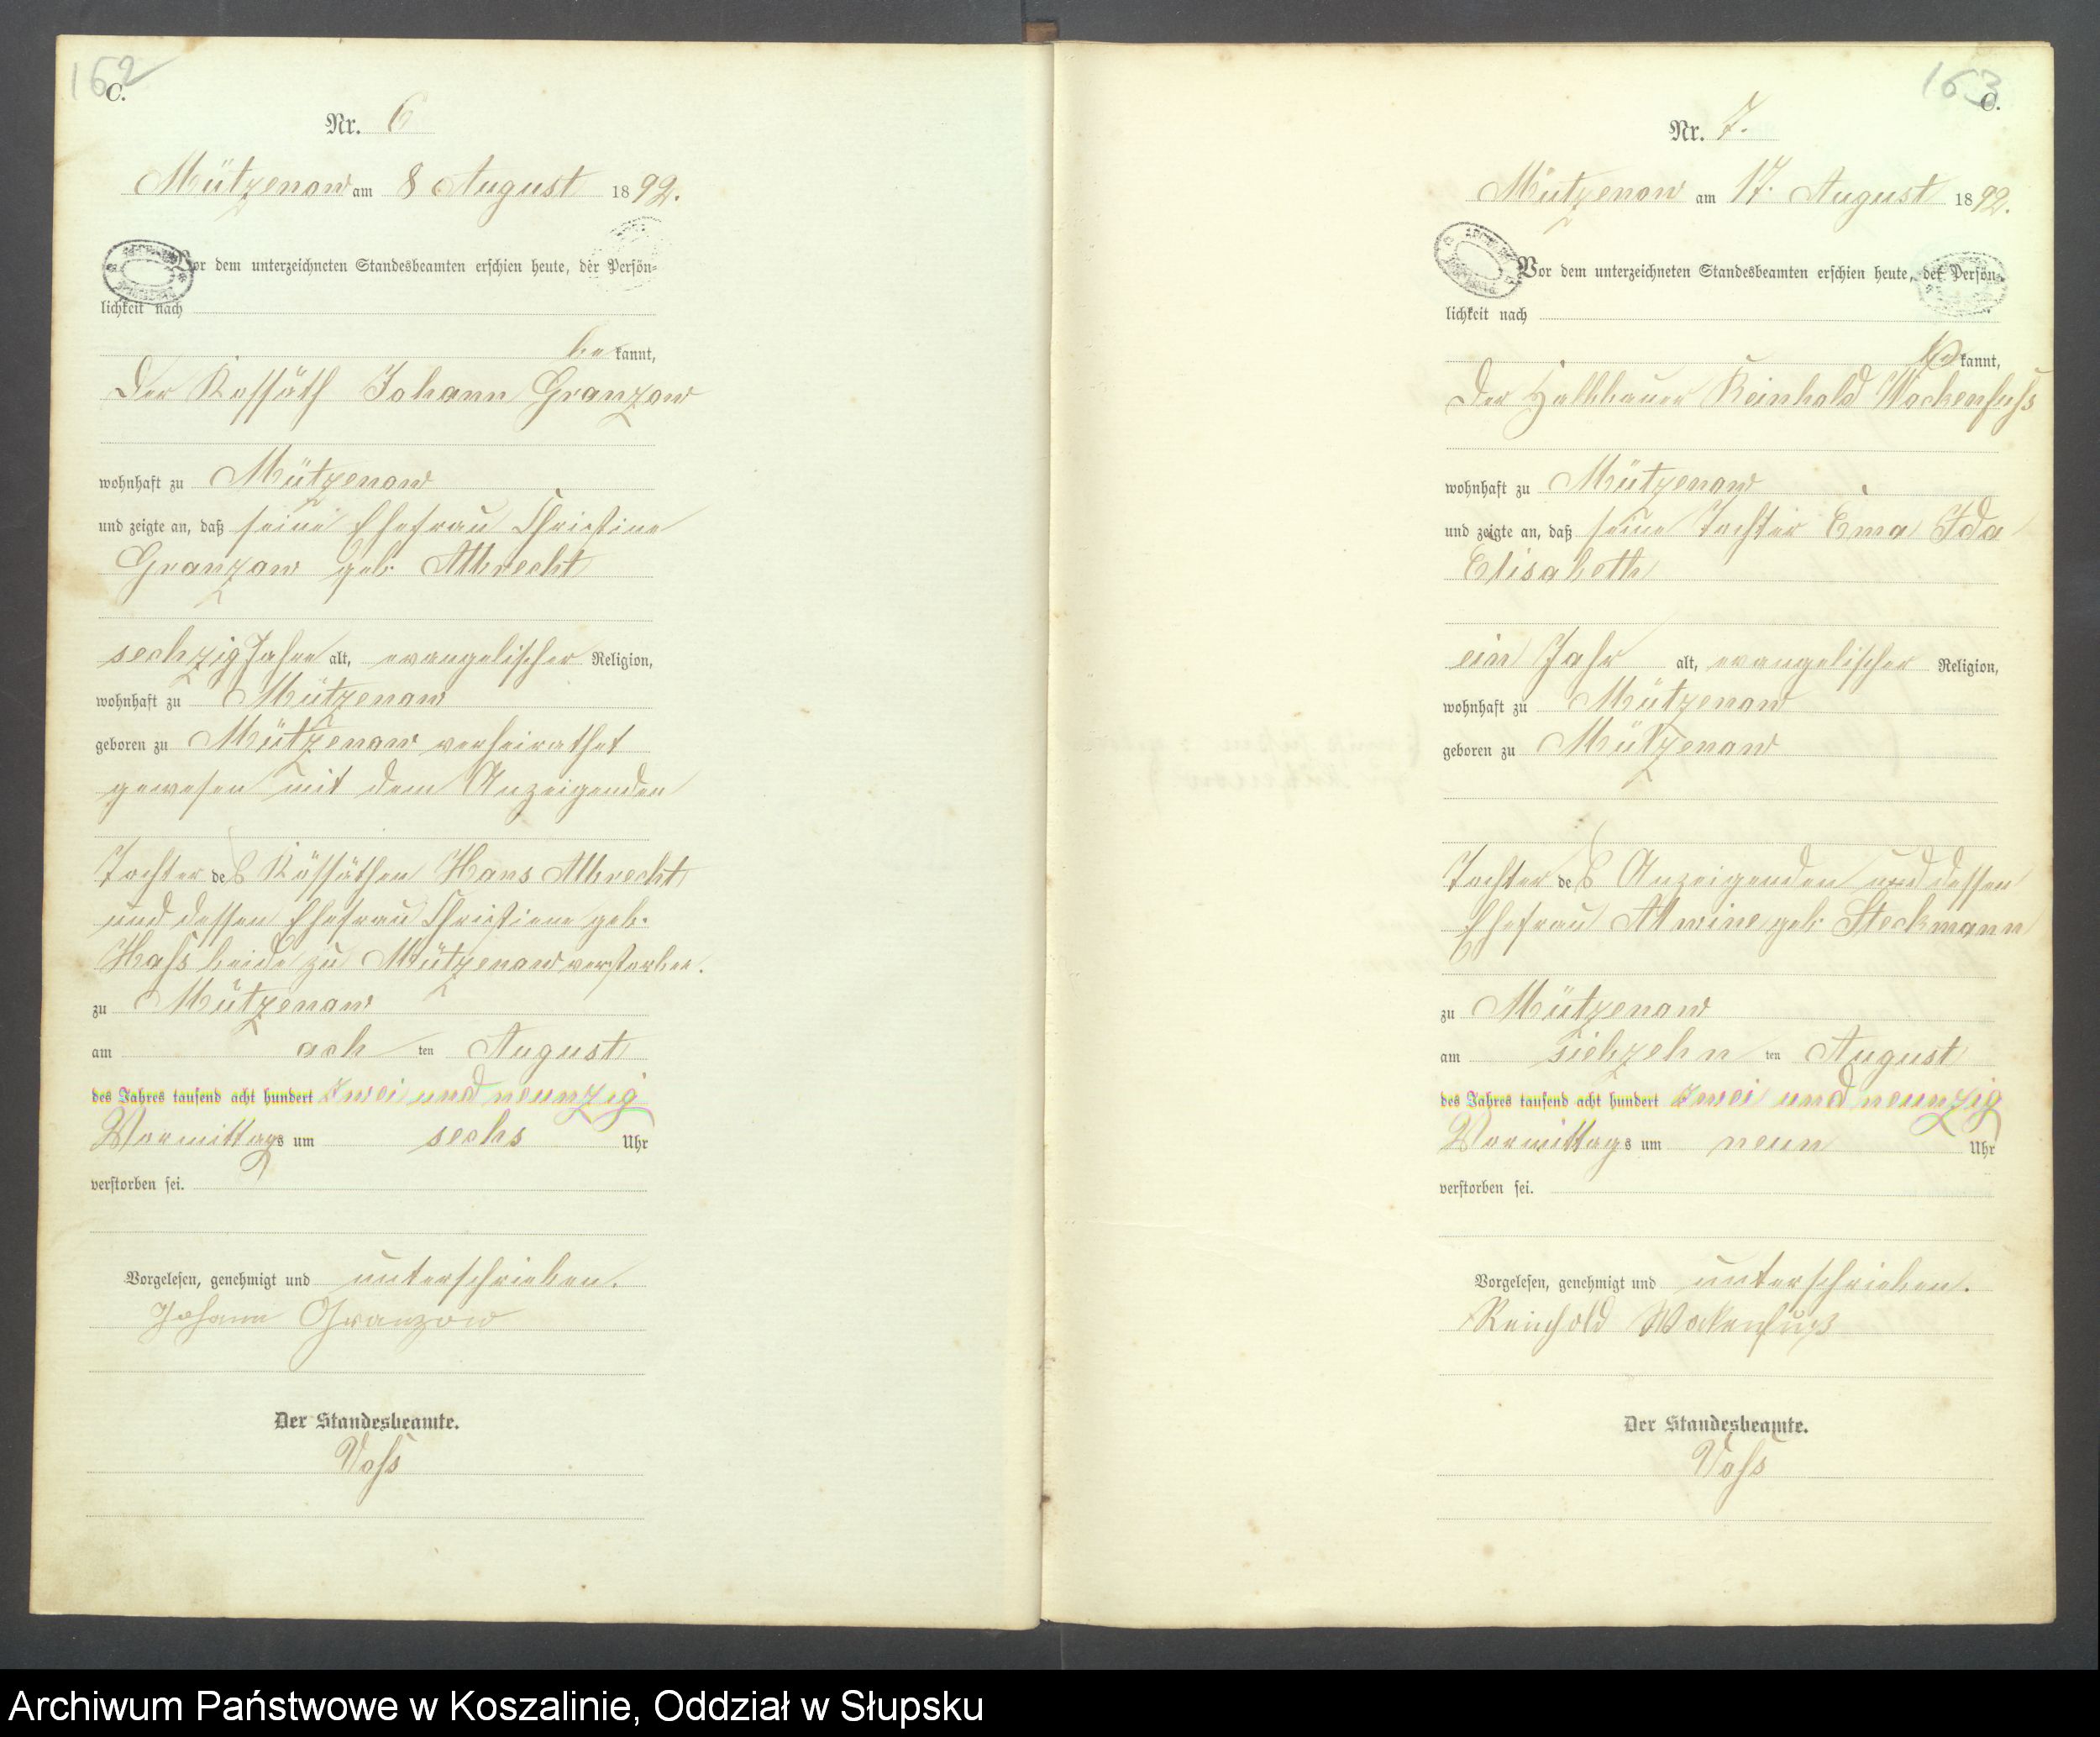 162
C.
Nr. 6
Mützenow am 8 August 1892.
Vor dem unterzeichneten Standesbeamten erschien heute, der Persön-
lichkeit nach
be kannt,
Der Kossäth Johann Granzow
wohnhaft zu Mützenow
und zeigte an, daß seine Ehefrau Christine
Granzow geb. Albrecht
sechzig Jahre alt, evangelischer Religion,
wohnhaft zu Mützenow
geboren zu Mützenow verheirathet
gewesen mit dem Anzeigenden
Tochter des Kossäthen Hans Albrecht
und dessen Ehefrau Christiane geb.
Hass beide zu Mützenow verstorben.
zu Mützenow
am ach ten August
des Jahres tausend acht hundert zwei und neunzig
Vormittags um sechs Uhr
verstorben sei.
Vorgelesen, genehmigt und unterschrieben.
Johann Granzow
Der Standesbeamte.
Voss
163
C.
Nr. 7.
Mützenow am 17. August 1892.
Vor dem unterzeichneten Standesbeamten erschien heute, der Persön-
lichkeit nach
be kannt,
Der Halbbauer Reinhold Wockenfuss
wohnhaft zu Mützenow
und zeigte an, daß seine Tochter Ema Ida
Elisabeth
ein Jahr alt, evangelischer Religion,
wohnhaft zu Mützenow
geboren zu Mützenow
Tochter des Anzeigenden und dessen
Ehefrau Alwine geb. Steckmann
zu Mützenow
am siebzehn ten August
des Jahres tausend acht hundert zwei und neunzig
Vormittags um neun Uhr
verstorben sei.
Vorgelesen, genehmigt und unterschrieben.
Reinhold Wokenfuß
Der Standesbeamte.
Voss
Archiwum Państwowe w Koszalinie, Oddział w Słupsku